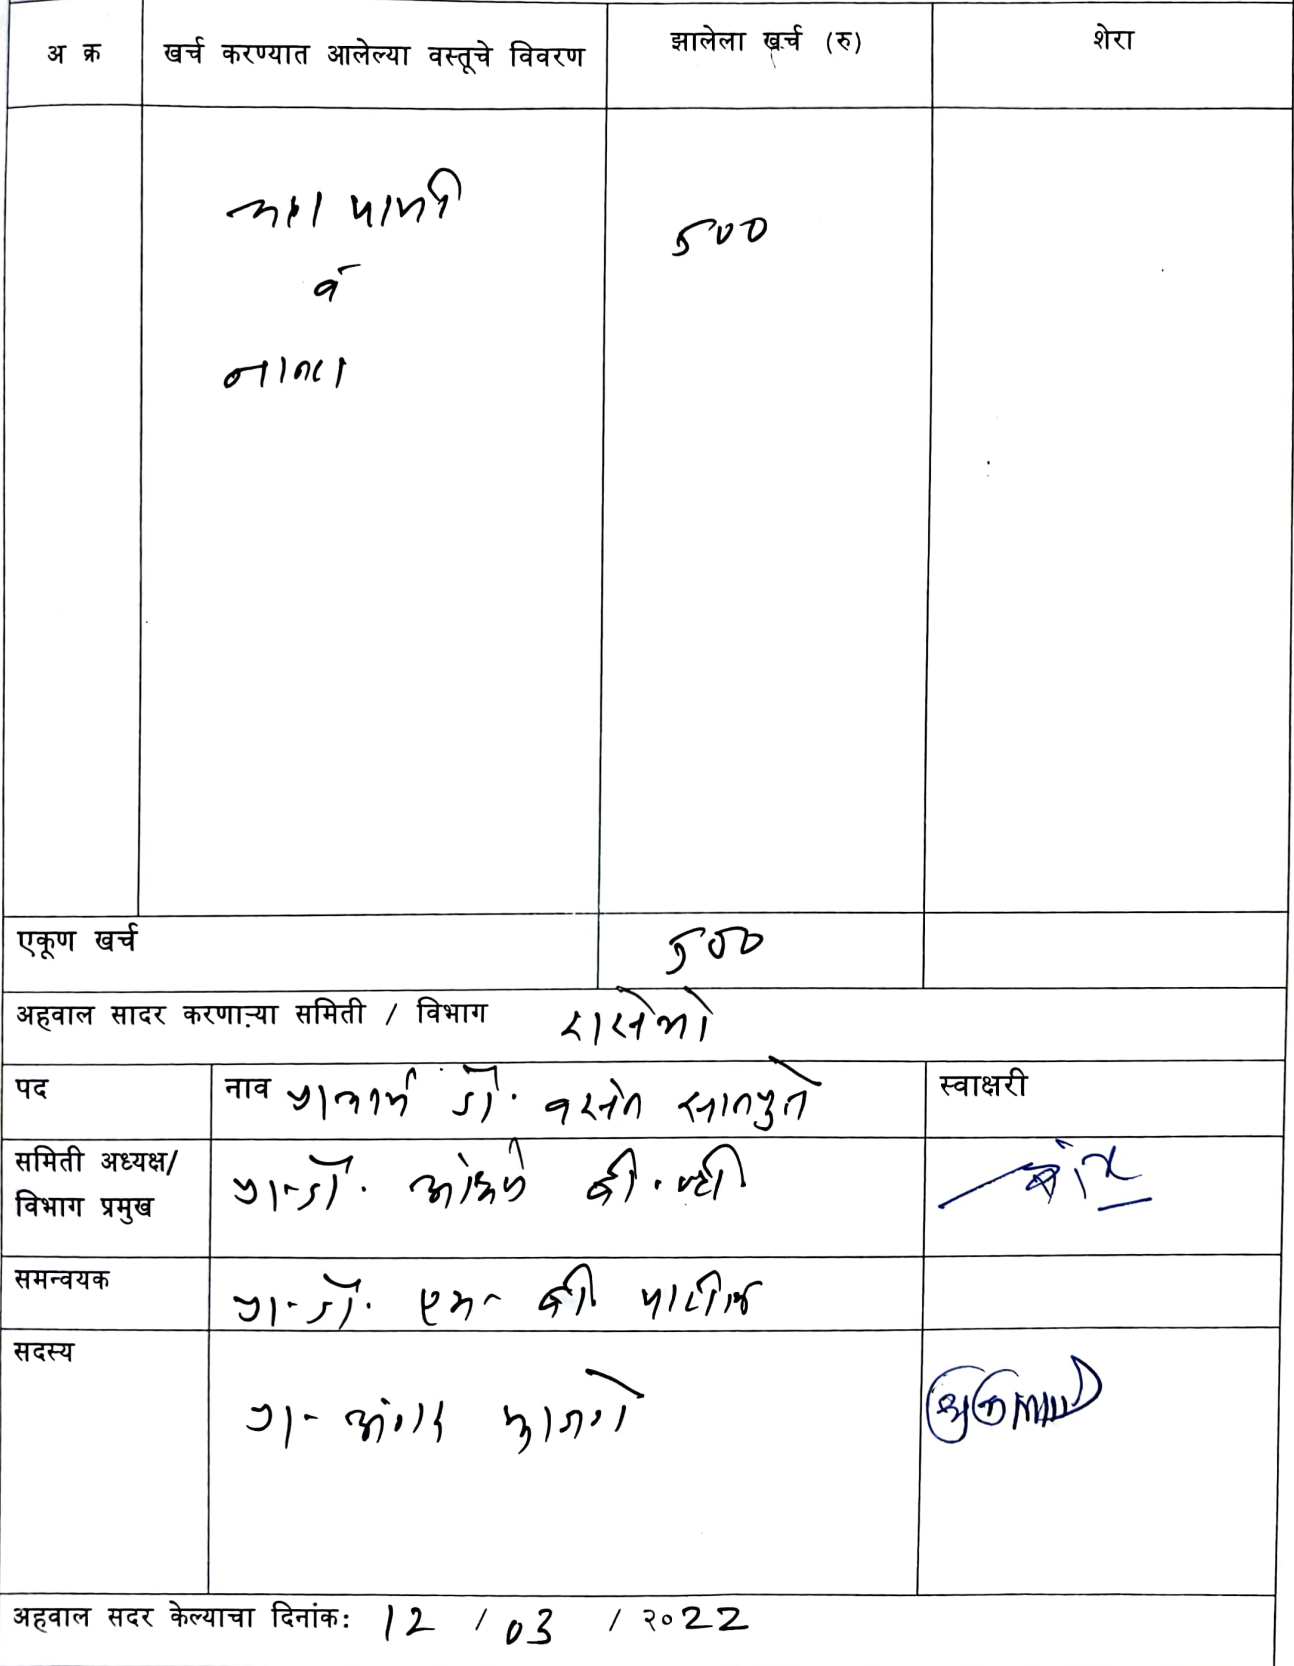 अ क्र खर्च करण्यात आलेल्या वस्तूचे विवरण झालेला खर्च (रु) शेरा
पाणी 500
व
नाश्ता
एकूण खर्च 500
अहवाल सादर करणाऱ्या समिती / विभाग रासेयो
पद नाव प्राचार्य डॉ. वसंत सातपुते स्वाक्षरी
समिती अध्यक्ष/
विभाग प्रमुख प्रा-डॉ. बी. व्ही
समन्वयक प्रा-डॉ. एम- बी पाटील
सदस्य
प्रा- अंगद फाजगे
अहवाल सदर केल्याचा दिनांक: 12 / 03 / २०22